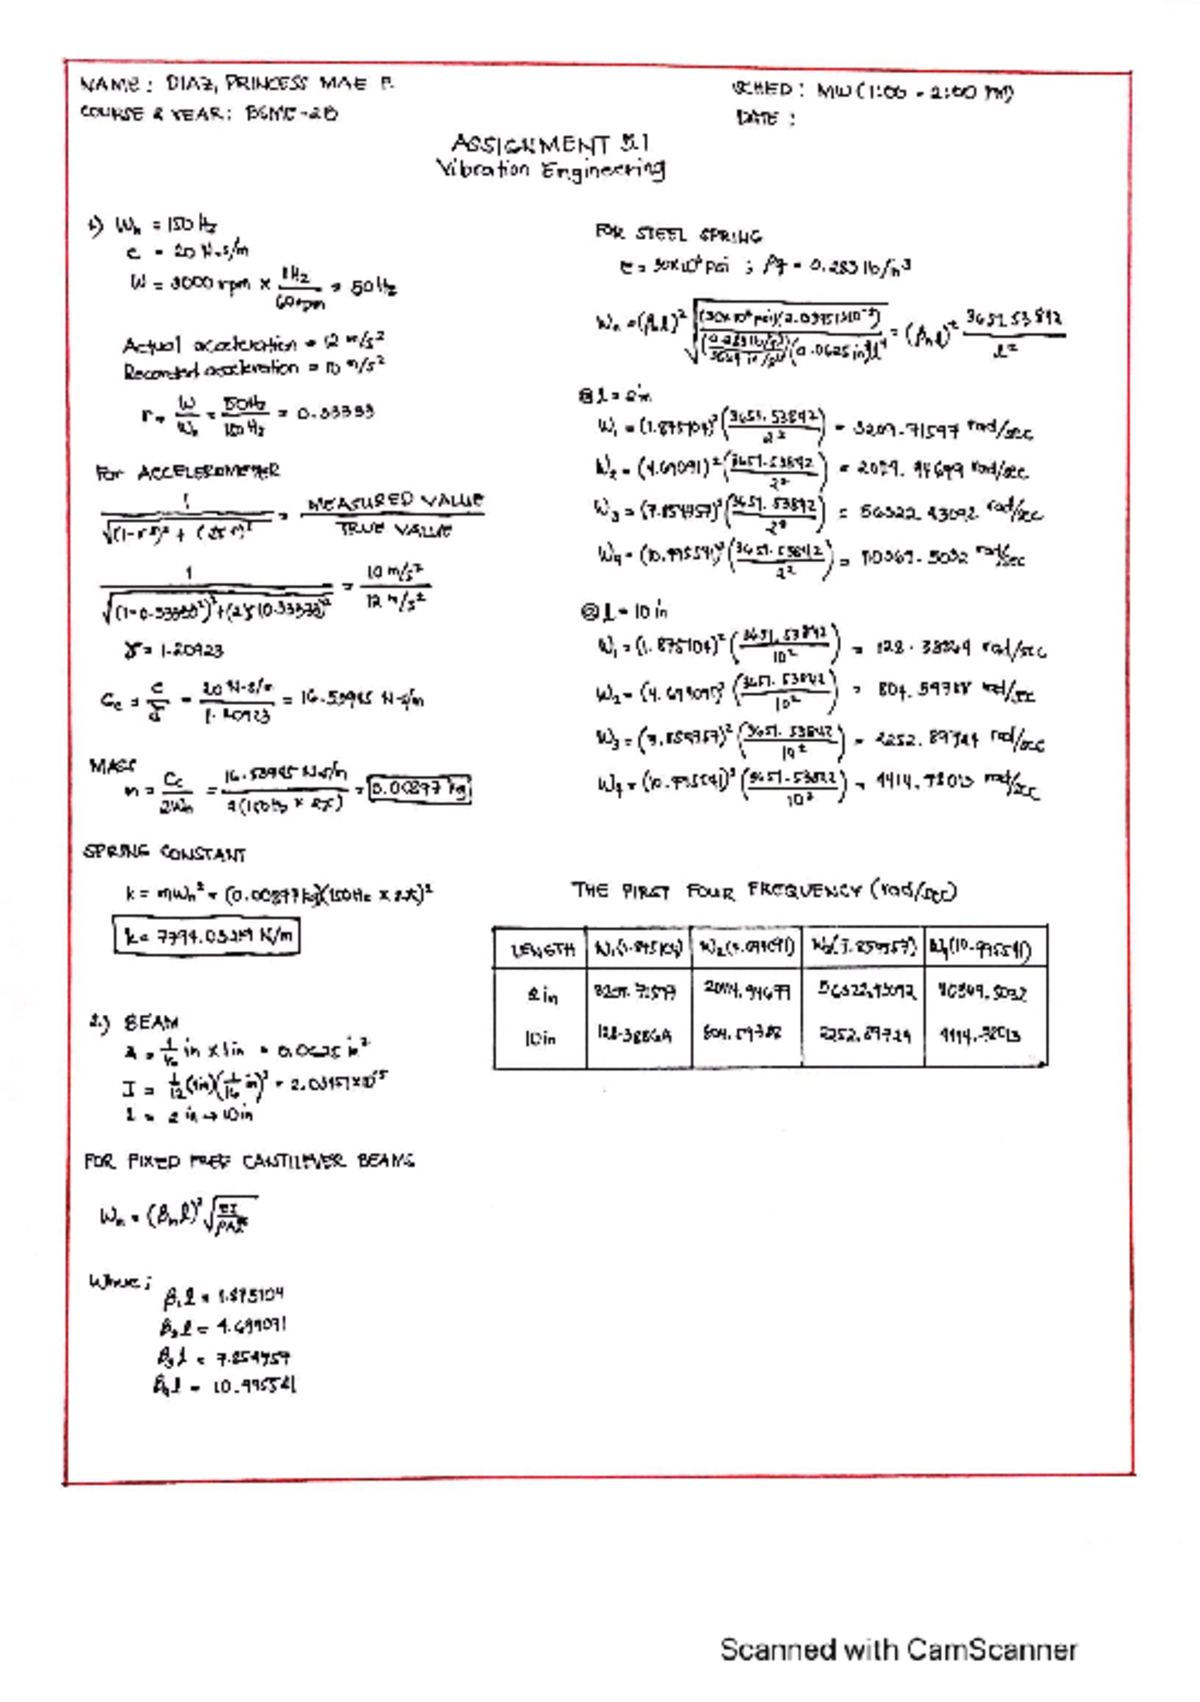 NAME: DIAZ, PRINCESS MAE P.
COURSE & YEAR: BSME-2B
SCHED: MW (1:00 - 2:00 PM)
DATE:
ASSIGNMENT 5.1
Vibration Engineering
1.) Wn = 150 Hz
c = 20 N-s/m
W = 3000 rpm × 1Hz / 60rpm = 50Hz
Actual acceleration = 12 m/s²
Recorded acceleration = 10 m/s²
r = W/Wn = 50Hz/150Hz = 0.33333
For ACCELEROMETER
1/√((1-r²)² + (2ζr)²) = MEASURED VALUE / TRUE VALUE
1/√((1-0.33333²)²+(2ζ(0.33333))² = 10 m/s² / 12 m/s²
ζ = 1.20923
Cc = c/ζ = 20 N-s/m / 1.20923 = 16.53945 N-s/m
MASS
m = Cc/2Wn = 16.53945 N-s/m / 2(150Hz × 2π) = 0.00877 kg
SPRING CONSTANT
k = mWn² = (0.00877kg)(150Hz × 2π)²
k = 7794.03219 N/m
2.) BEAM
A = 1/16 in × 1in = 0.0625 in²
I = 1/12 (1in)(1/16 in)³ = 2.03451×10⁻⁵
l = 2 in → 10in
FOR FIXED FREE CANTILEVER BEAMS
Wn = (βnl)² √(EI/ρAl⁴)
Where;
β₁l = 1.875104
β₂l = 4.694091
β₃l = 7.854757
β₄l = 10.995541
FOR STEEL SPRING
E = 30×10⁶ psi ; ρg = 0.283 lb/in³
Wn = (βnl)² √((30×10⁶ psi)(2.03451×10⁻⁵) / (0.283 lb/in³ / 386.4 in/s²)(0.0625 in²)l⁴) = (βnl)² 3651.53842 / l²
@ l = 2in
W₁ = (1.875104)² (3651.53842 / 2²) = 3209.71597 rad/sec
W₂ = (4.69091)² (3651.53842 / 2²) = 2014.94699 rad/sec
W₃ = (7.854757)² (3651.53842 / 2²) = 56322.43092 rad/sec
W₄ = (10.995541)² (3651.53842 / 2²) = 110369.5032 rad/sec
@ l = 10 in
W₁ = (1.875104)² (3651.53842 / 10²) = 128.38864 rad/sec
W₂ = (4.694091)² (3651.53842 / 10²) = 804.59788 rad/sec
W₃ = (7.854757)² (3651.53842 / 10²) = 2252.89724 rad/sec
W₄ = (10.995541)² (3651.53842 / 10²) = 4414.78013 rad/sec
THE FIRST FOUR FREQUENCY (rad/sec)
LENGTH W₁(1.875104) W₂(4.694091) W₃(7.854757) W₄(10.995541)
2in 3209.71597 2014.94699 56322.43092 110369.5032
10in 128.38864 804.59788 2252.89724 4414.78013
Scanned with CamScanner